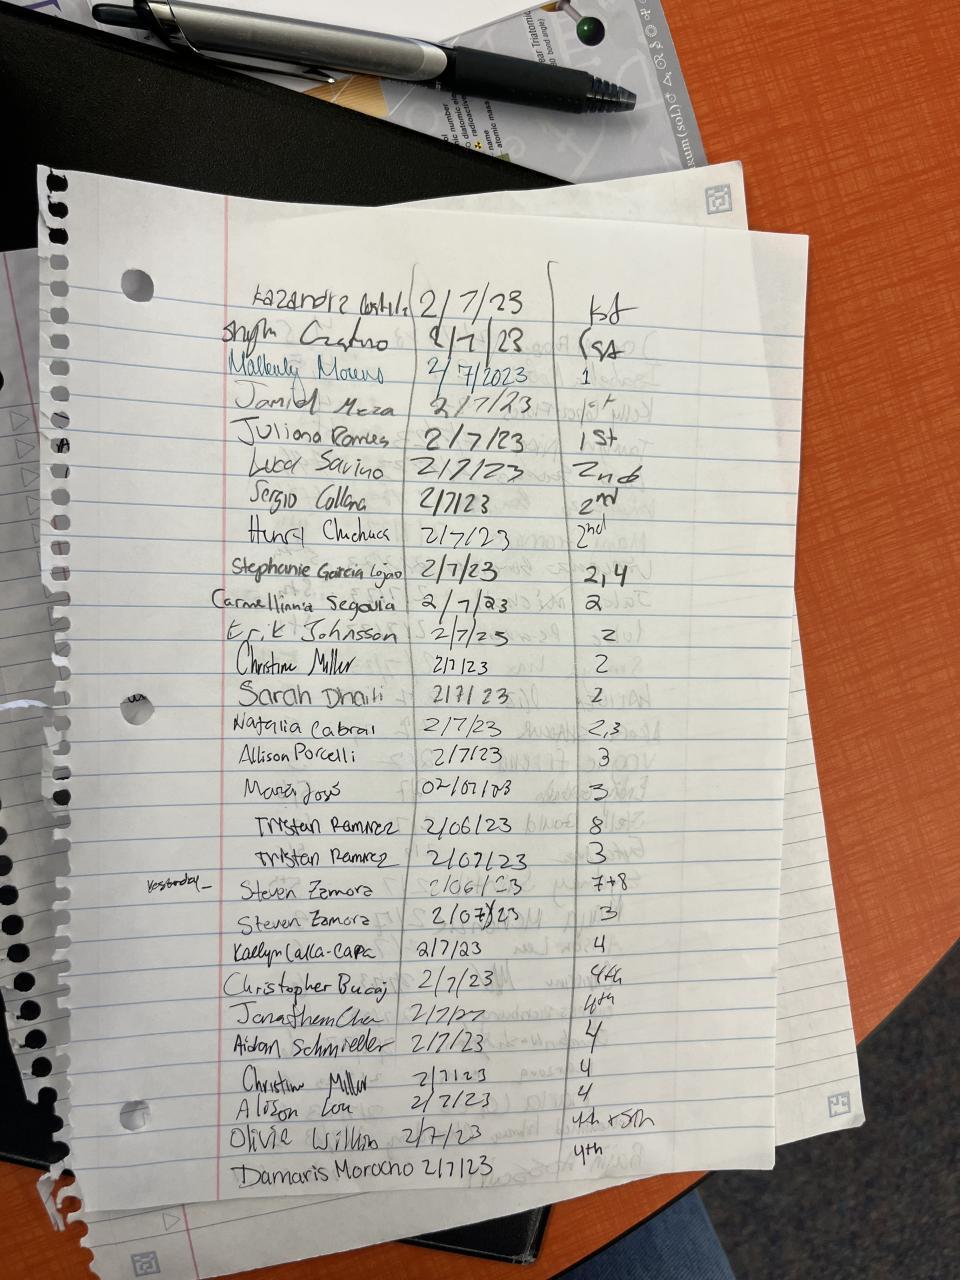 ear Triatomic
bond angle)
nic number
diatomic el
radioactive
name
atomic mass
kum (soL)
Kazandra 2/7/23 1st
2/7/23 1st
Mallerly Moreno 2/7/2023 1
Jamiel Meza 2/7/23 1st
Juliana Ramires 2/7/23 1st
Luca Savino 2/7/23 2nd
Sergio Collana 2/7/23 2nd
Henry Chuchuca 2/7/23 2nd
Stephanie Garcia Lojano 2/7/23 2,4
Carmellinnia Segovia 2/7/23 2
Erik Johnsson 2/7/23 2
Christine Miller 2/7/23 2
Sarah Dhaiti 2/7/23 2
Natalia Cabral 2/7/23 2,3
Allison Porcelli 2/7/23 3
Maria José 02/07/23 3
Tristan Ramirez 2/06/23 8
Tristan Ramirez 2/07/23 3
Yesterday- Steven Zamora 2/06/23 7+8
Steven Zamora 2/07/23 3
Kaelyn Calla-Capa 2/7/23 4
Christopher Bucaj 2/7/23 4th
Jonathan 2/7/27 4th
Aidan Schmieder 2/7/23 4
Christine Miller 2/7/23 4
2/7/23 4
Olivia 2/7/23 4th + 5th
Damaris Morocho 2/7/23 4th